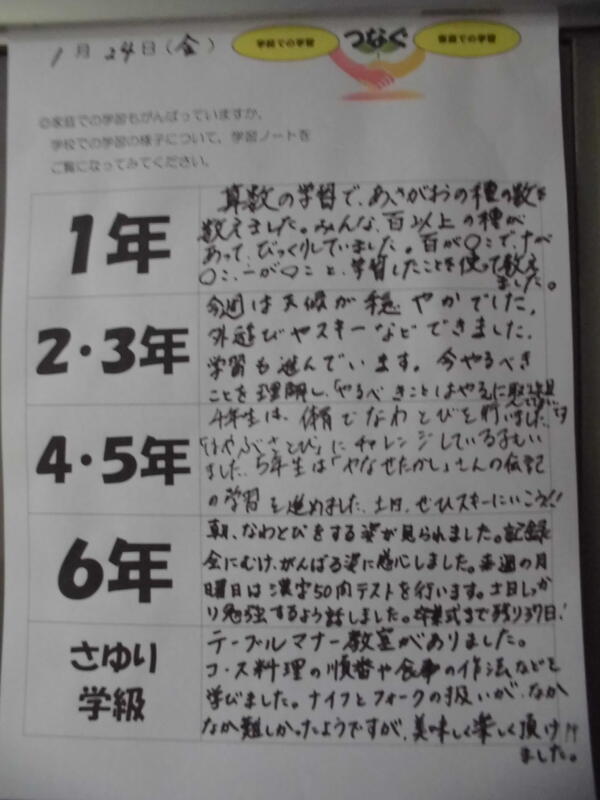 1月24日(金)
学校での学習 つなぐ 家庭での学習
◎家庭での学習もがんばっていますか。
学校での学習の様子について、学習ノートを
ご覧になってみてください。
1年
算数の学習で、あさがおの種の数を
数えました。みんな、百以上の種が
あって、びっくりしていました。百が〇こで、十が
〇こ、一が〇こと、学習したことを使って数え
ました。
2・3年
今週は天候が穏やかでした。
外遊びやスキーなどできました。
学習も進んでいます。今やるべき
ことを理解し、やるべきことはやるに
4・5年
4年生は、体育でなわとびを行いました。
「はやぶさとび」にチャレンジしている子もい
ました。5年生は「やなせたかし」さんの伝記
の学習を進めました。土日、ぜひスキーにいこう!!
6年
朝、なわとびをする姿が見られました。記録
会にむけ、がんばる姿に感心しました。来週の月
曜日は漢字50問テストを行います。土日しっか
り勉強するよう話しました。卒業式まで残り37日!
さゆり
学級
テーブルマナー教室がありました。
コース料理の順番や食事の作法などを
学びました。ナイフとフォークの扱いが、なか
なか難しかったようですが、美味しく楽しく頂け
ました。